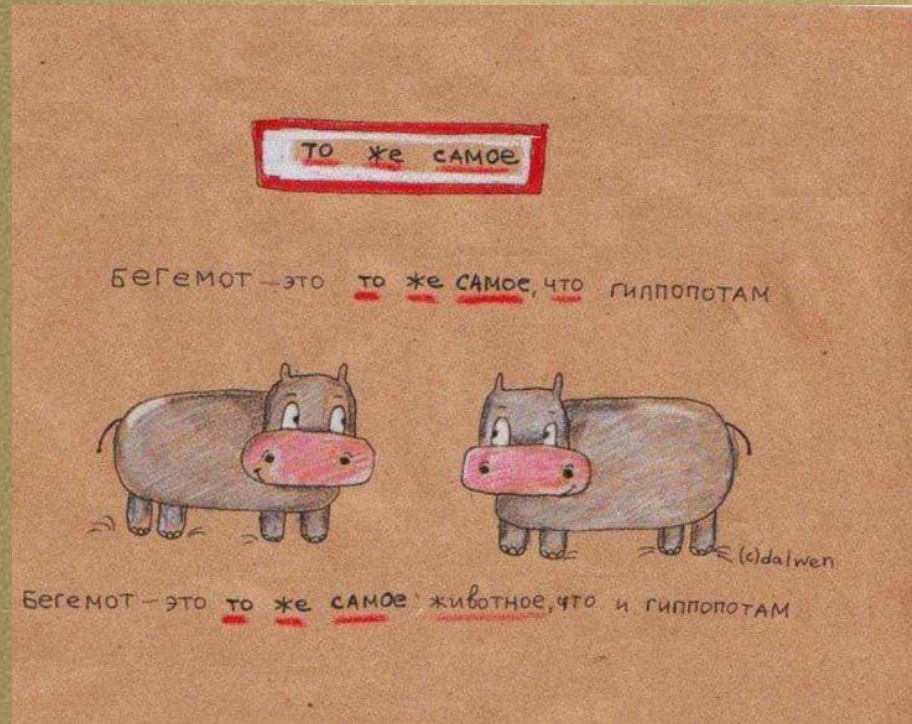 то же самое
Бегемот – это то же самое, что гиппопотам
(c)dalwen
Бегемот – это то же самое животное, что и гиппопотам